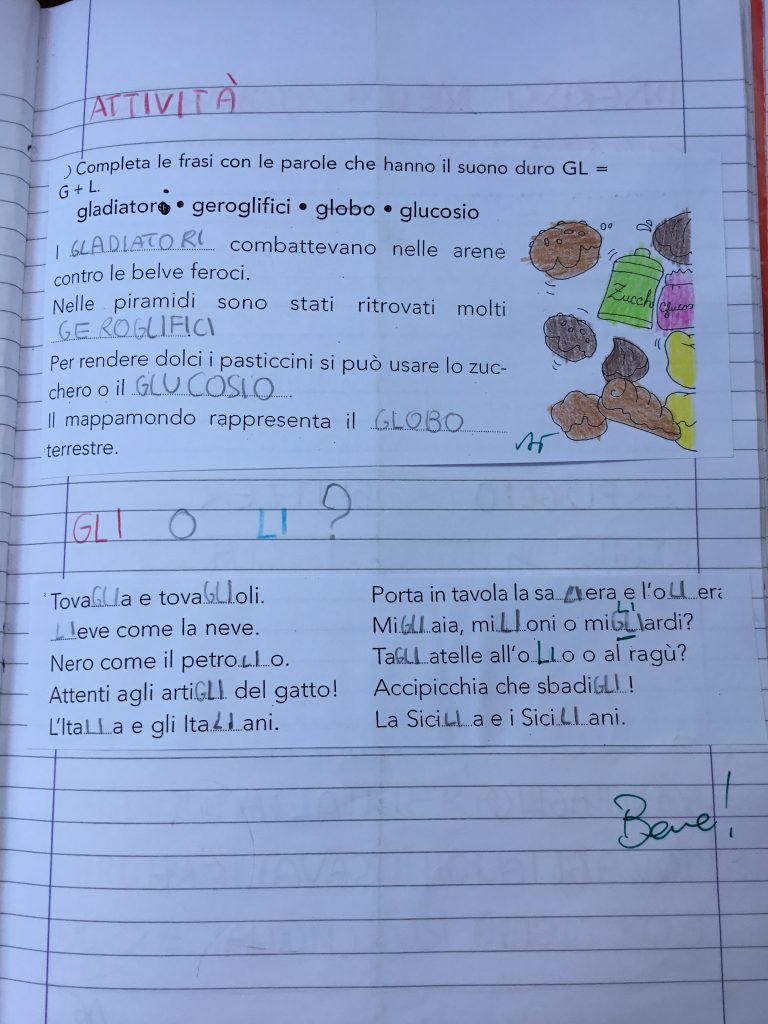 ATTIVITÀ
) Completa le frasi con le parole che hanno il suono duro GL =
G + L.
gladiatori • geroglifici • globo • glucosio
I GLADIATORI combattevano nelle arene
contro le belve feroci.
Nelle piramidi sono stati ritrovati molti
GEROGLIFICI
Per rendere dolci i pasticcini si può usare lo zuc-
chero o il GLUCOSIO.
Il mappamondo rappresenta il GLOBO
terrestre.
Zucch
Glucos
GLI O LI ?
TovaGLIa e tovaGLIoli.
LIeve come la neve.
Nero come il petroLIo.
Attenti agli artiGLI del gatto!
L'ItaLIa e gli ItaLIani.
Porta in tavola la saLIera e l'oLIera
MiGLIaia, miLIoni o miGLIardi?
LI
TaGLIatelle all'oLIo o al ragù?
Accipicchia che sbadiGLI!
La SiciLIa e i SiciLIani.
Bene!